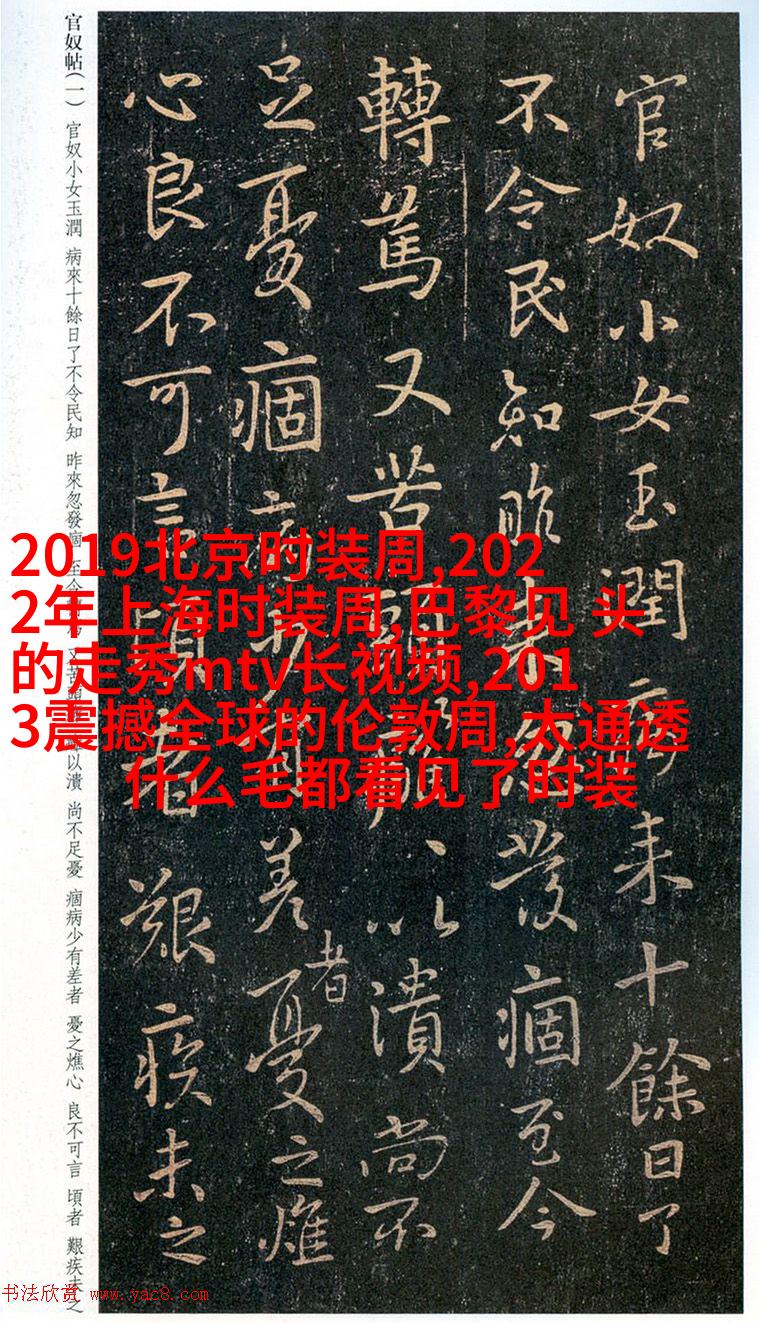 官奴小女玉潤病来十餘日了
不令民知昨来忽發痼至今
轉篤又苦頭癰以潰尚不
足憂痼病少有差者憂之燋
心良不可言頃者艱疾未之
官奴帖(一) 官奴小女玉潤 病來十餘日了不令民知 昨來忽發痼 至今 又苦頭 以潰 尚不足憂 痼病少有差者 憂之燋心 良不可言 頃者 艱疾未之
2019北京时装周,202
2年上海时装周,巴黎见 头
的走秀mtv长视频,201
3震撼全球的伦敦周,太通透
什么毛都看见了时装
书法欣赏 www.yac8.com